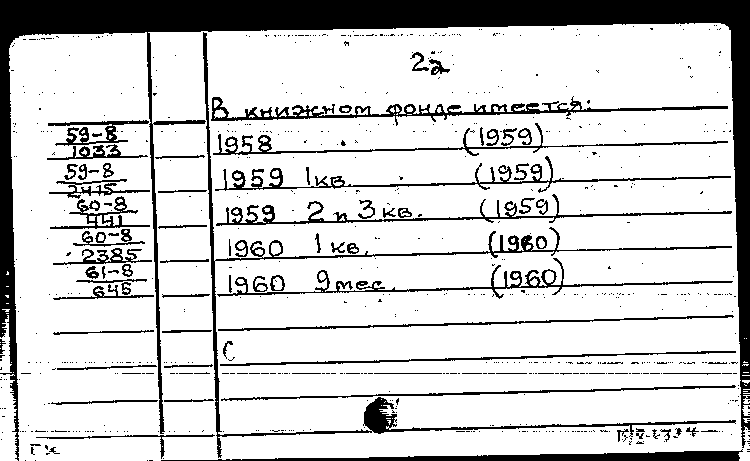 22
В книжном фонде имеется:
59-8
1033
1958 (1959)
59-8
2415
1959 1 кв. (1959)
60-8
441
1959 2 и 3 кв. (1959)
60-8
2385
1960 1 кв. (1960)
61-8
645
1960 9 мес. (1960)
С